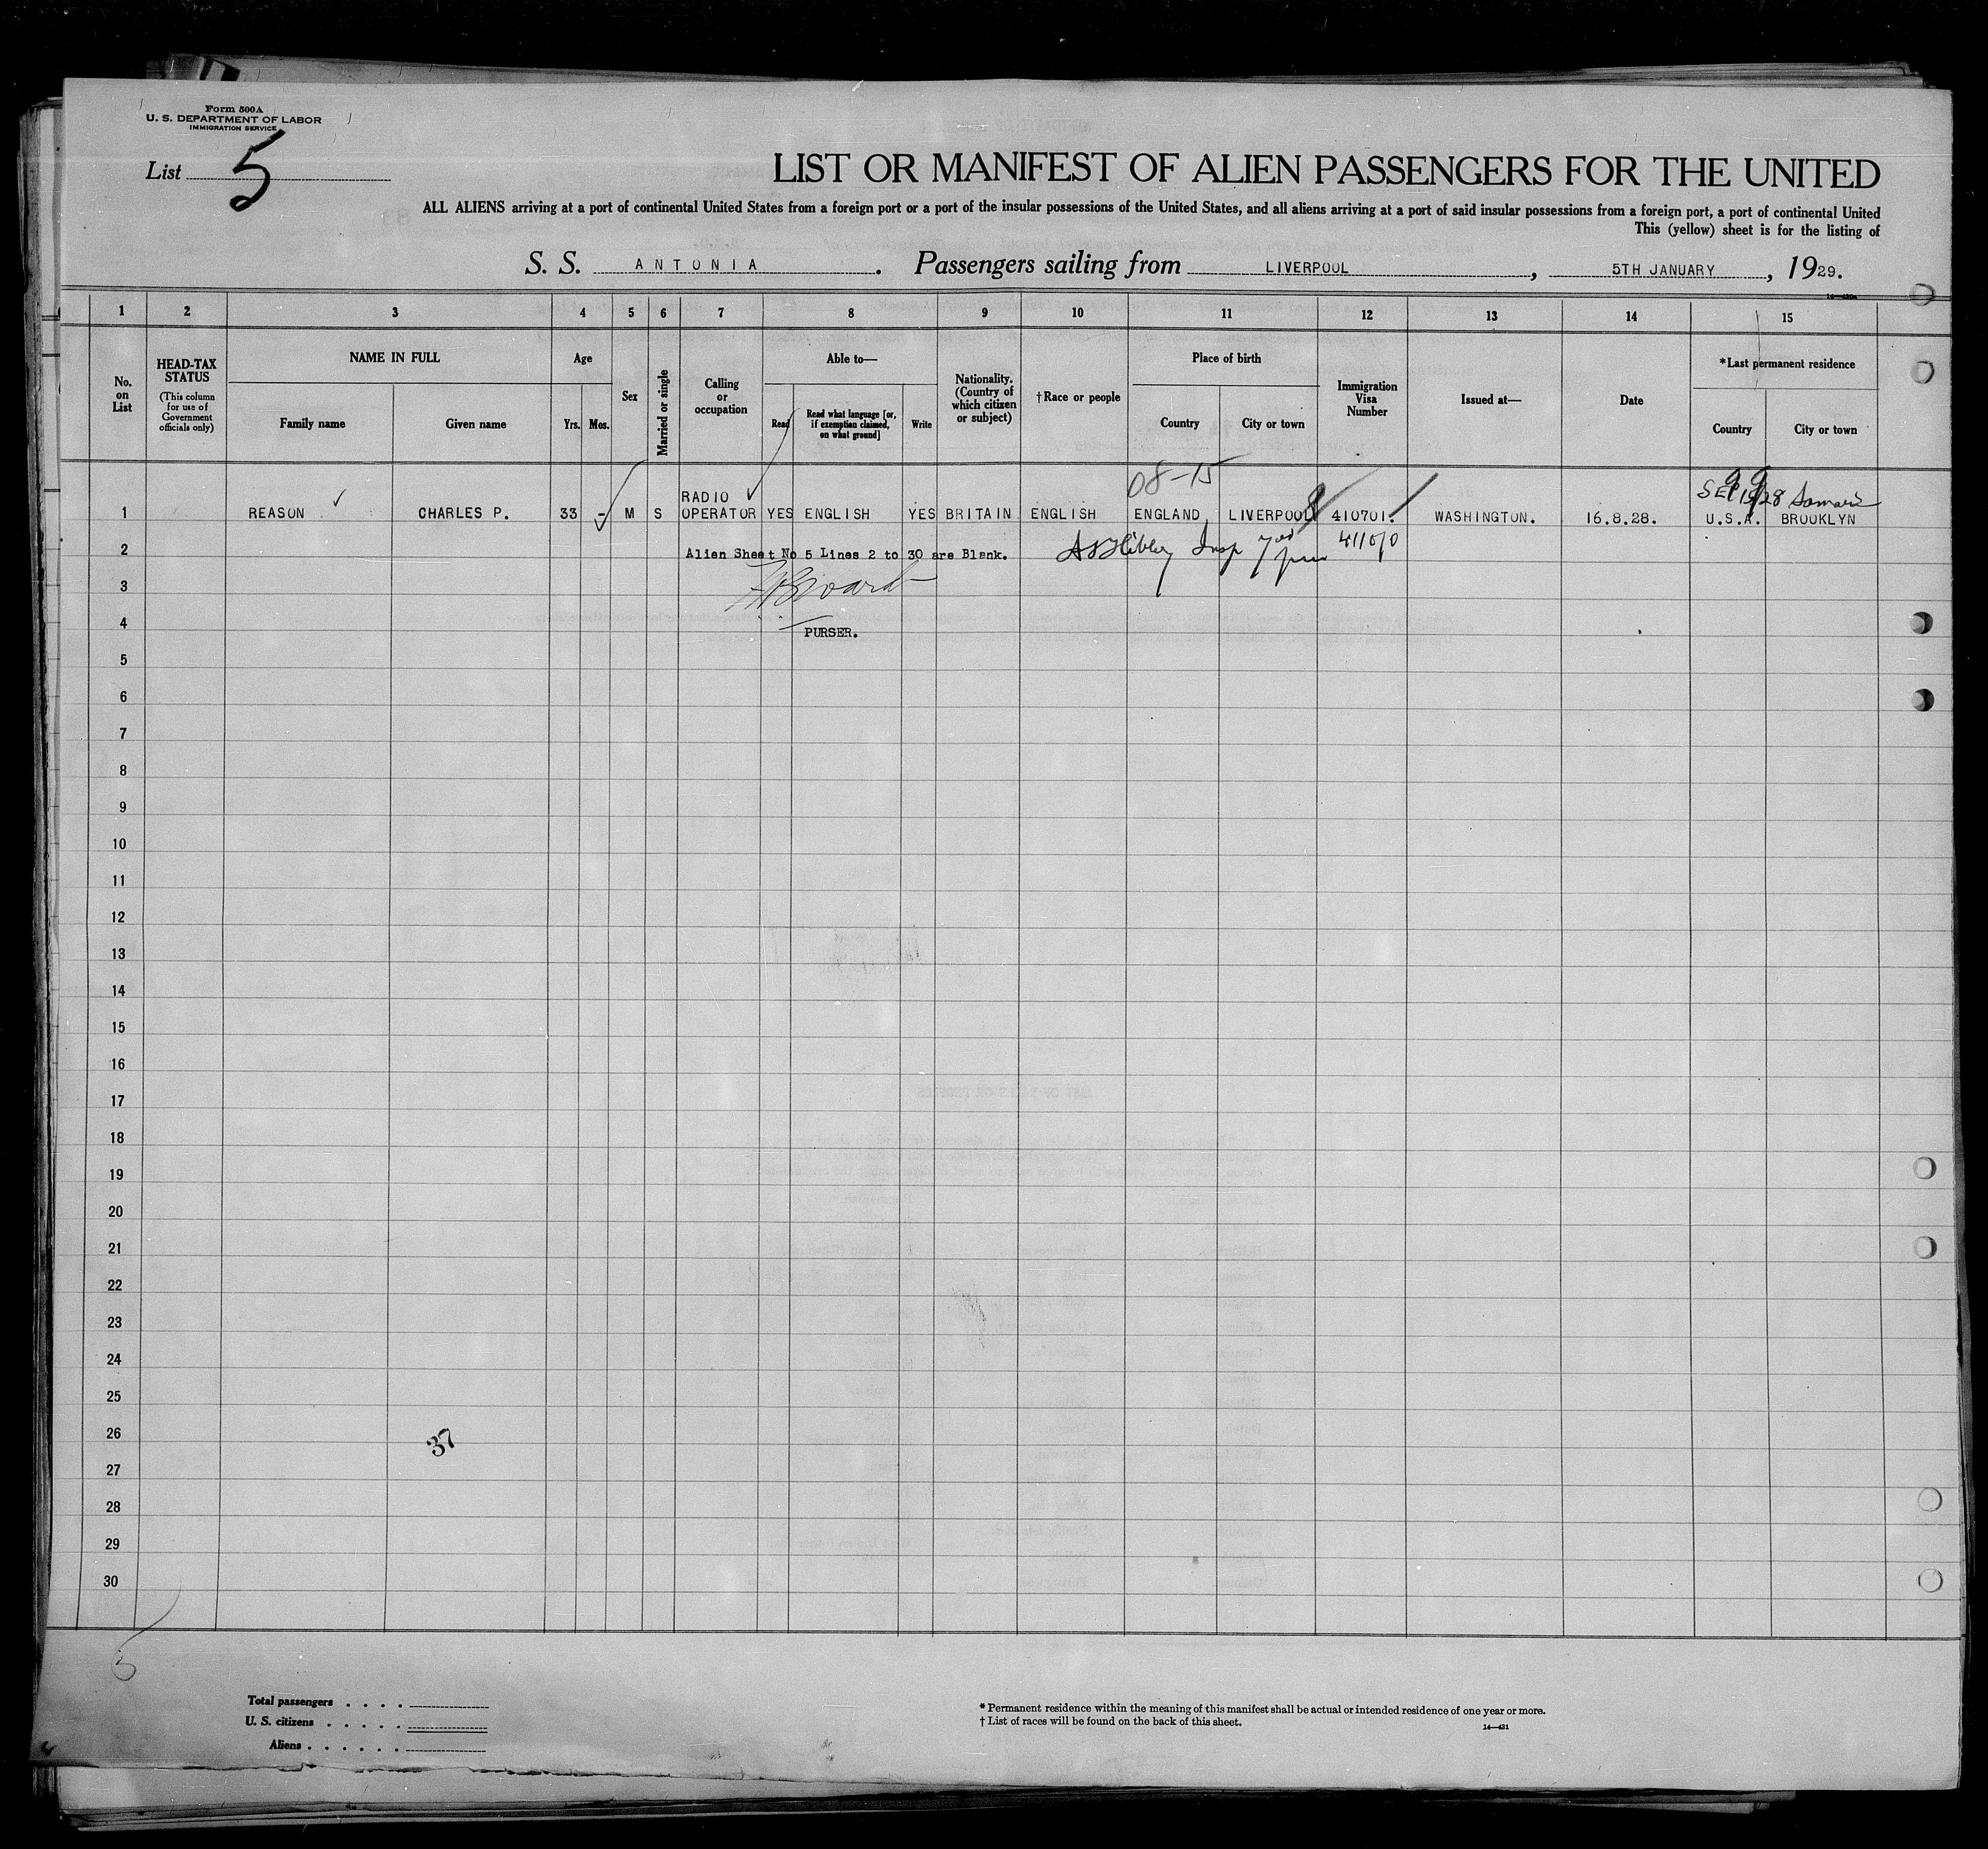 Form 500A
U. S. DEPARTMENT OF LABOR
IMMIGRATION SERVICE
List 5
LIST OR MANIFEST OF ALIEN PASSENGERS FOR THE UNITED
ALL ALIENS arriving at a port of continental United States from a foreign port or a port of the insular possessions of the United States, and all aliens arriving at a port of said insular possessions from a foreign port, a port of continental United
This (yellow) sheet is for the listing of
S. S. ANTONIA. Passengers sailing from LIVERPOOL, 5TH JANUARY, 1929.
1 2 3 4 5 6 7 8 9 10 11 12 13 14 15
No. on List
HEAD-TAX STATUS
(This column for use of Government officials only)
NAME IN FULL
Family name
Given name
Age
Yrs. Mos.
Sex
Married or single
Calling or occupation
Able to—
Read
Read what language [or, if exemption claimed, on what ground]
Write
Nationality. (Country of which citizen or subject)
†Race or people
Place of birth
Country
City or town
Immigration Visa Number
Issued at—
Date
*Last permanent residence
Country
City or town
08-15
1 REASON CHARLES P. 33 - M S RADIO OPERATOR YES ENGLISH YES BRITAIN ENGLISH ENGLAND, LIVERPOOL 410701. WASHINGTON. 16.8.28. U.S.A. BROOKLYN
2 Alien Sheet No 5 Lines 2 to 30 are Blank.
3
4 PURSER.
5
6
7
8
9
10
11
12
13
14
15
16
17
18
19
20
21
22
23
24
25
26
37
27
28
29
30
5
Total passengers . . . .
U. S. citizens . . . . .
Aliens . . . . . .
* Permanent residence within the meaning of this manifest shall be actual or intended residence of one year or more.
† List of races will be found on the back of this sheet.
14—431